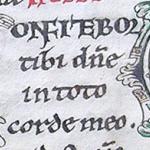 ONFITEBOR
tibi dn̄e
in toto
corde meo.